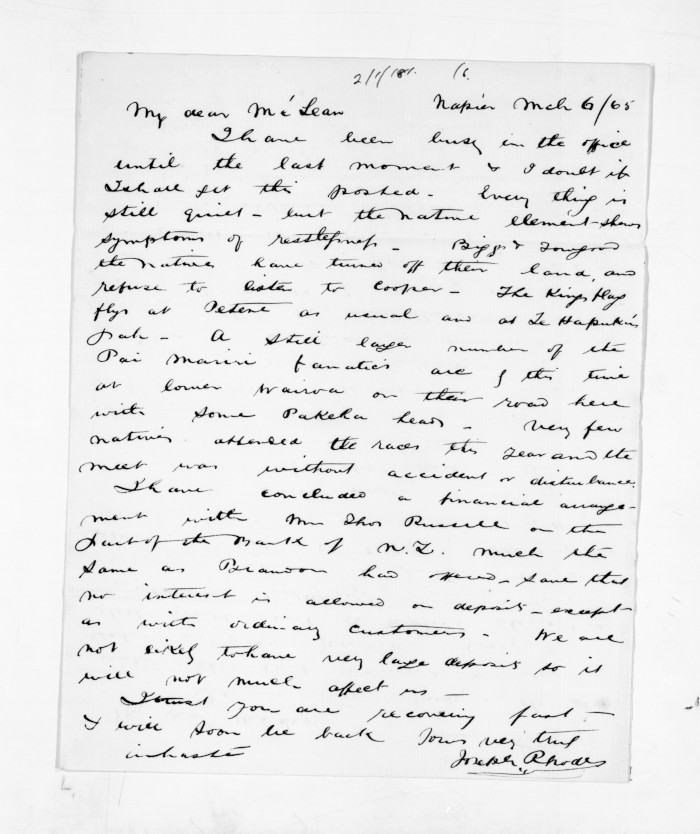 2/1/181. /6.
My dear McLean Napier Mch 6/65
I have been busy in the office
until the last moment & I doubt if
I shall get this posted - Every thing is
still quiet - but the native element shews
symptoms of restlessness - Biggs &
the natives have turned off their land, and
refuse to listen to Cooper - The Kings flag
flys at Petene as usual and at Te Hapukus
pah - A still larger number of the
Pai Mariri fanatics are by this time
at lower Wairoa on their road here
with some Pakeha heads - Very few
natives attended the races this year and the
meet was without accident or disturbance.
I have concluded a financial arrange-
ment with Mr Thos Russell on the
part of the Bank of N.Z. much the
same as Brandon had offered - save that
no interest is allowed on deposits - except
as with ordinary customers - We are
not likely to have very large deposits so it
will not much affect us -
I trust you are recovering fast -
& will soon be back Yours very truly
in haste Joseph Rhodes